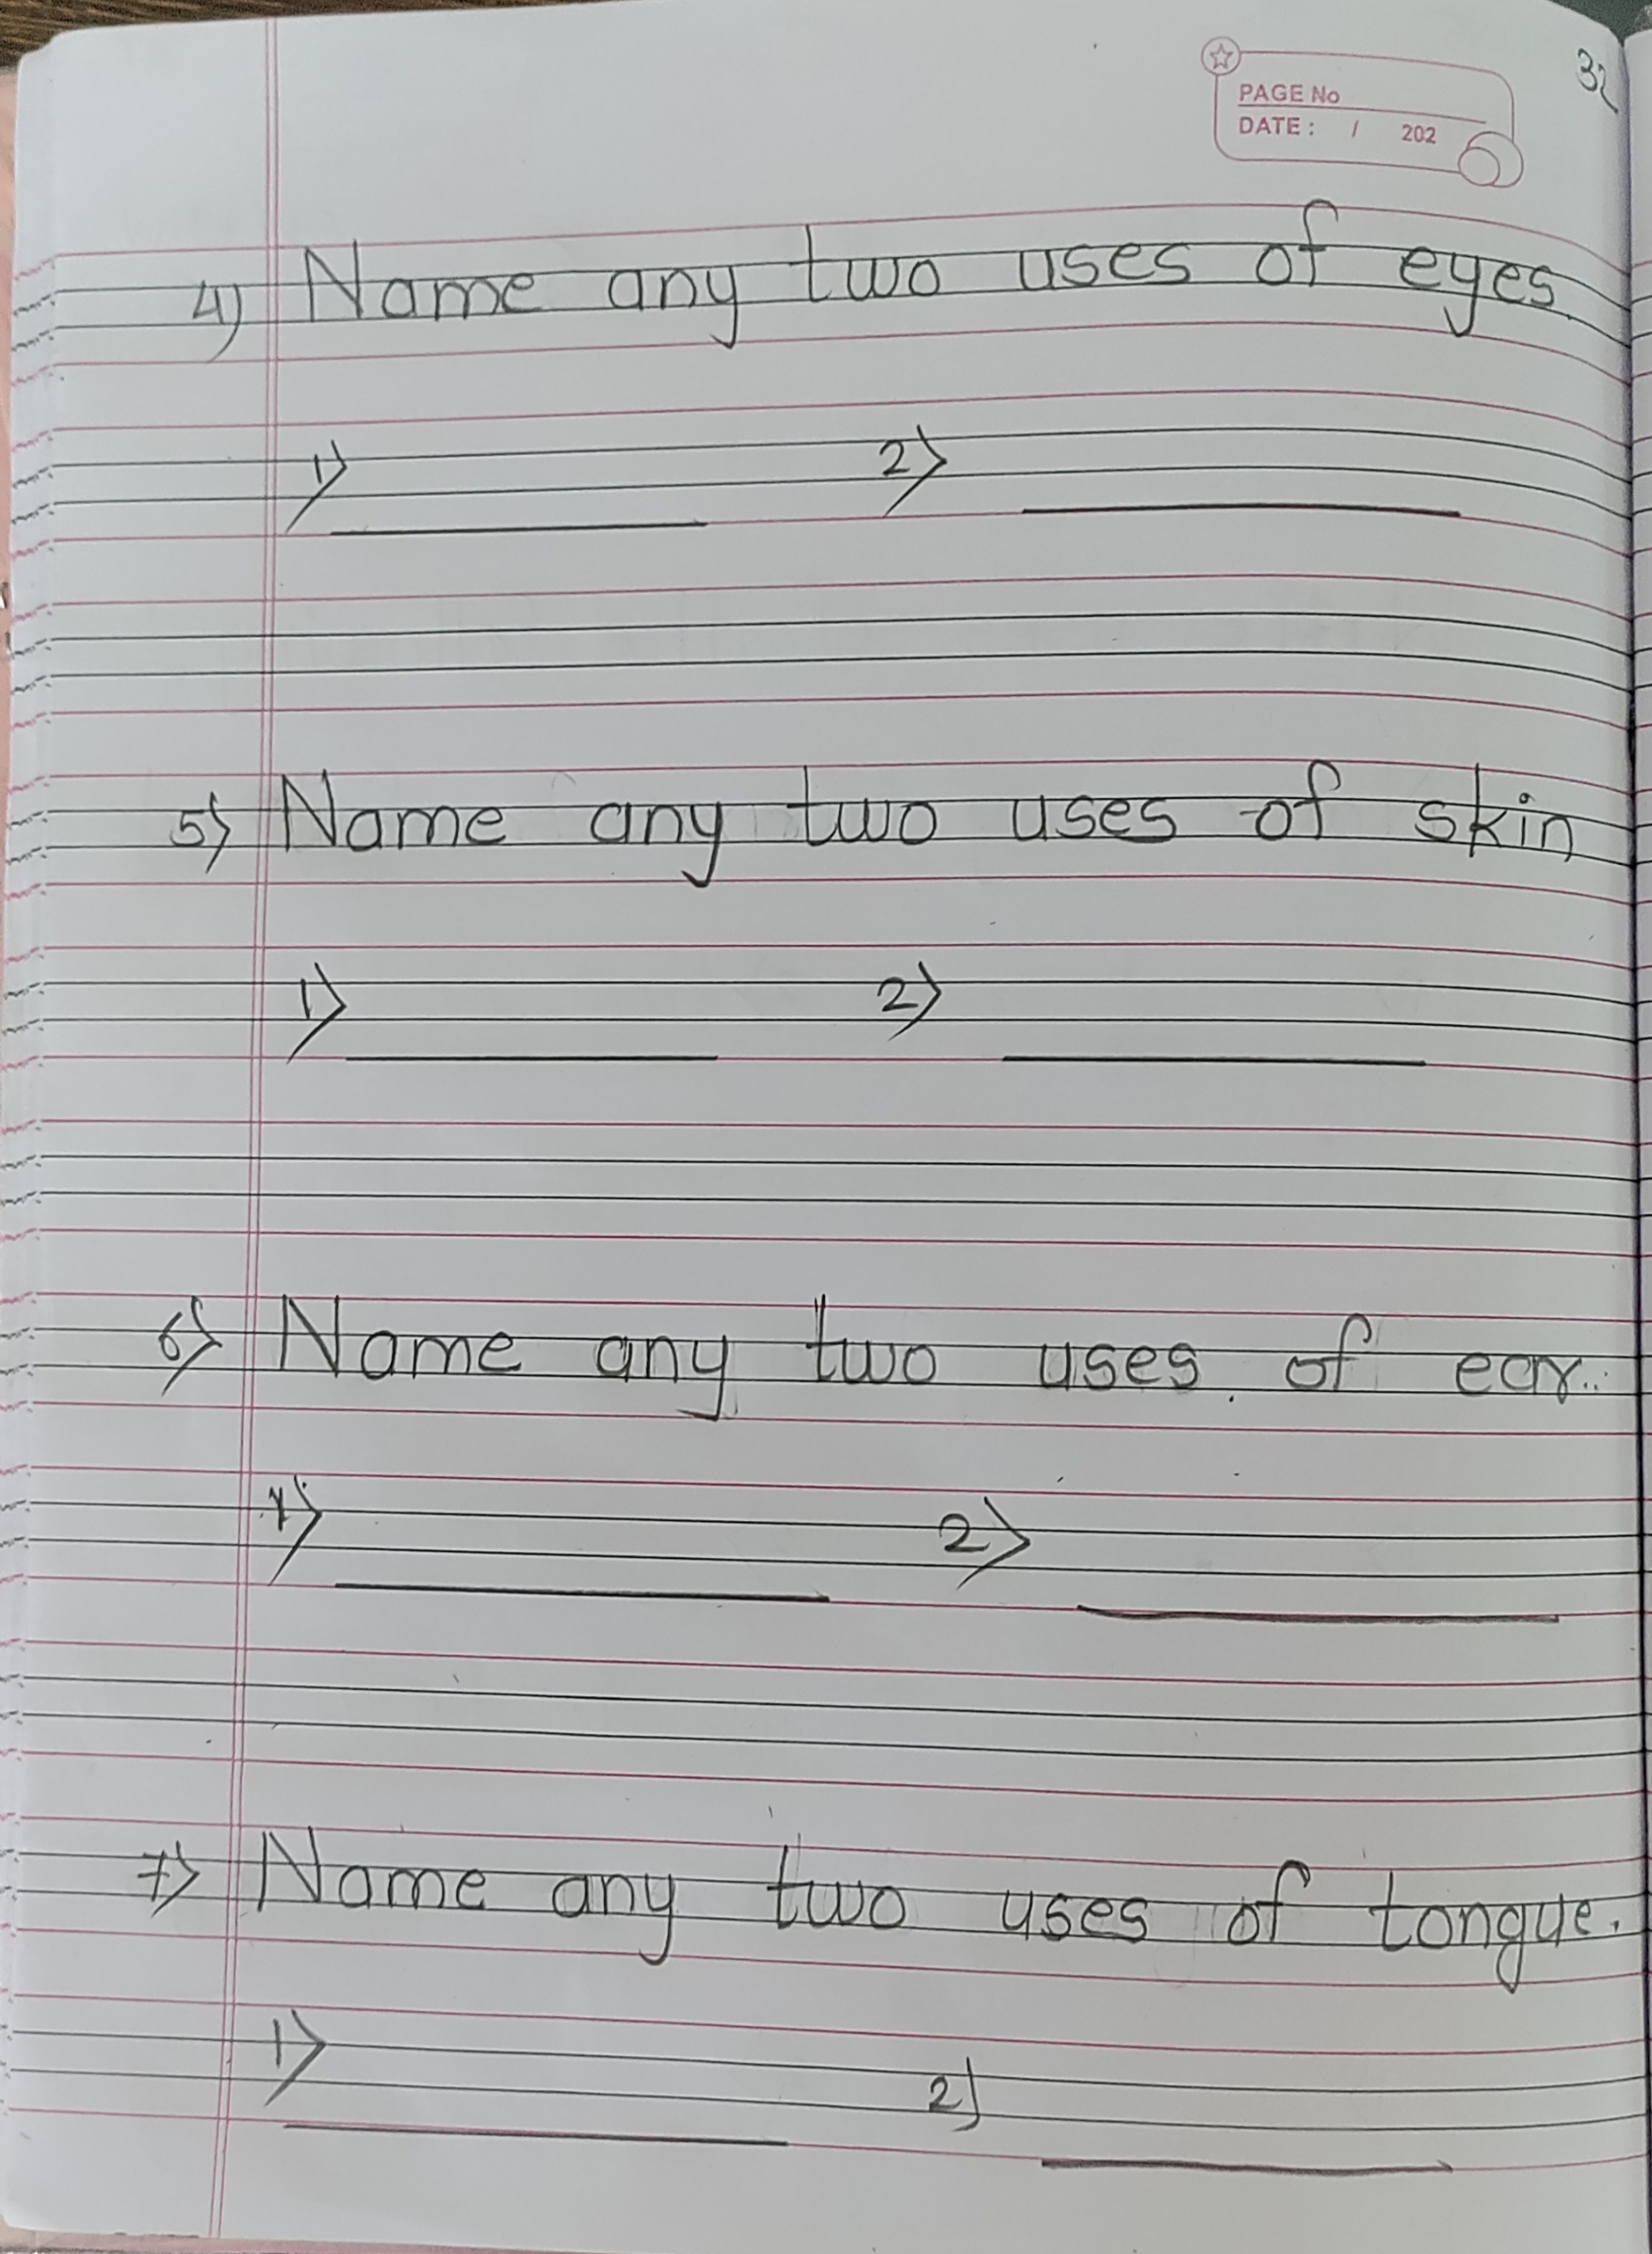 32
PAGE No
DATE : / 202
4) Name any two uses of eyes.
1) 2)
5) Name any two uses of skin
1) 2)
6) Name any two uses of ear.
1) 2)
7) Name any two uses of tongue.
1) 2)